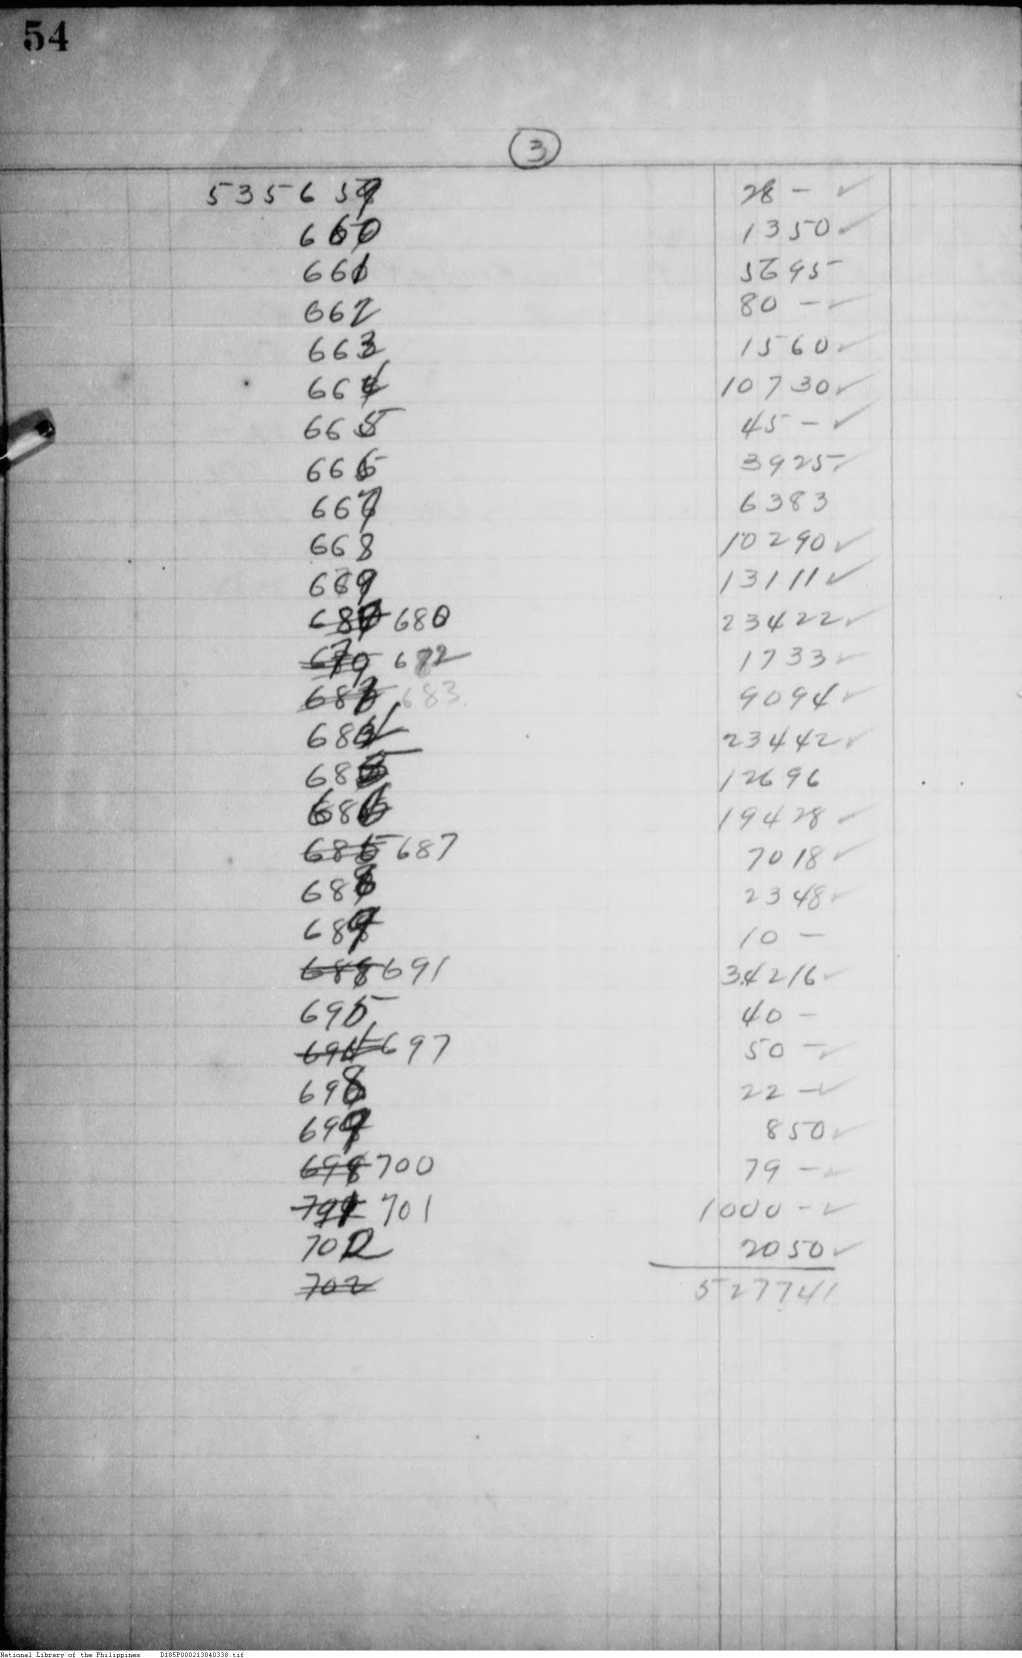 54
3
5356 659 28 - ✓
660 1350 ✓
661 5695
662 80 - ✓
663 1560 ✓
664 10730 ✓
665 45 - ✓
666 3925 ✓
667 6383
668 10290 ✓
669 13111 ✓
680 23422 ✓
679 682 1733 ✓
683 9094 ✓
684 23442 ✓
685 12696
686 19428 ✓
685 687 7018 ✓
688 2348 ✓
689 10 -
688 691 34216 ✓
695 40 -
697 50 - ✓
698 22 - ✓
699 850 ✓
698 700 79 - ✓
701 1000 - ✓
702 2050 ✓
702 527741
National Library of the Philippines D185P000213040338.tif